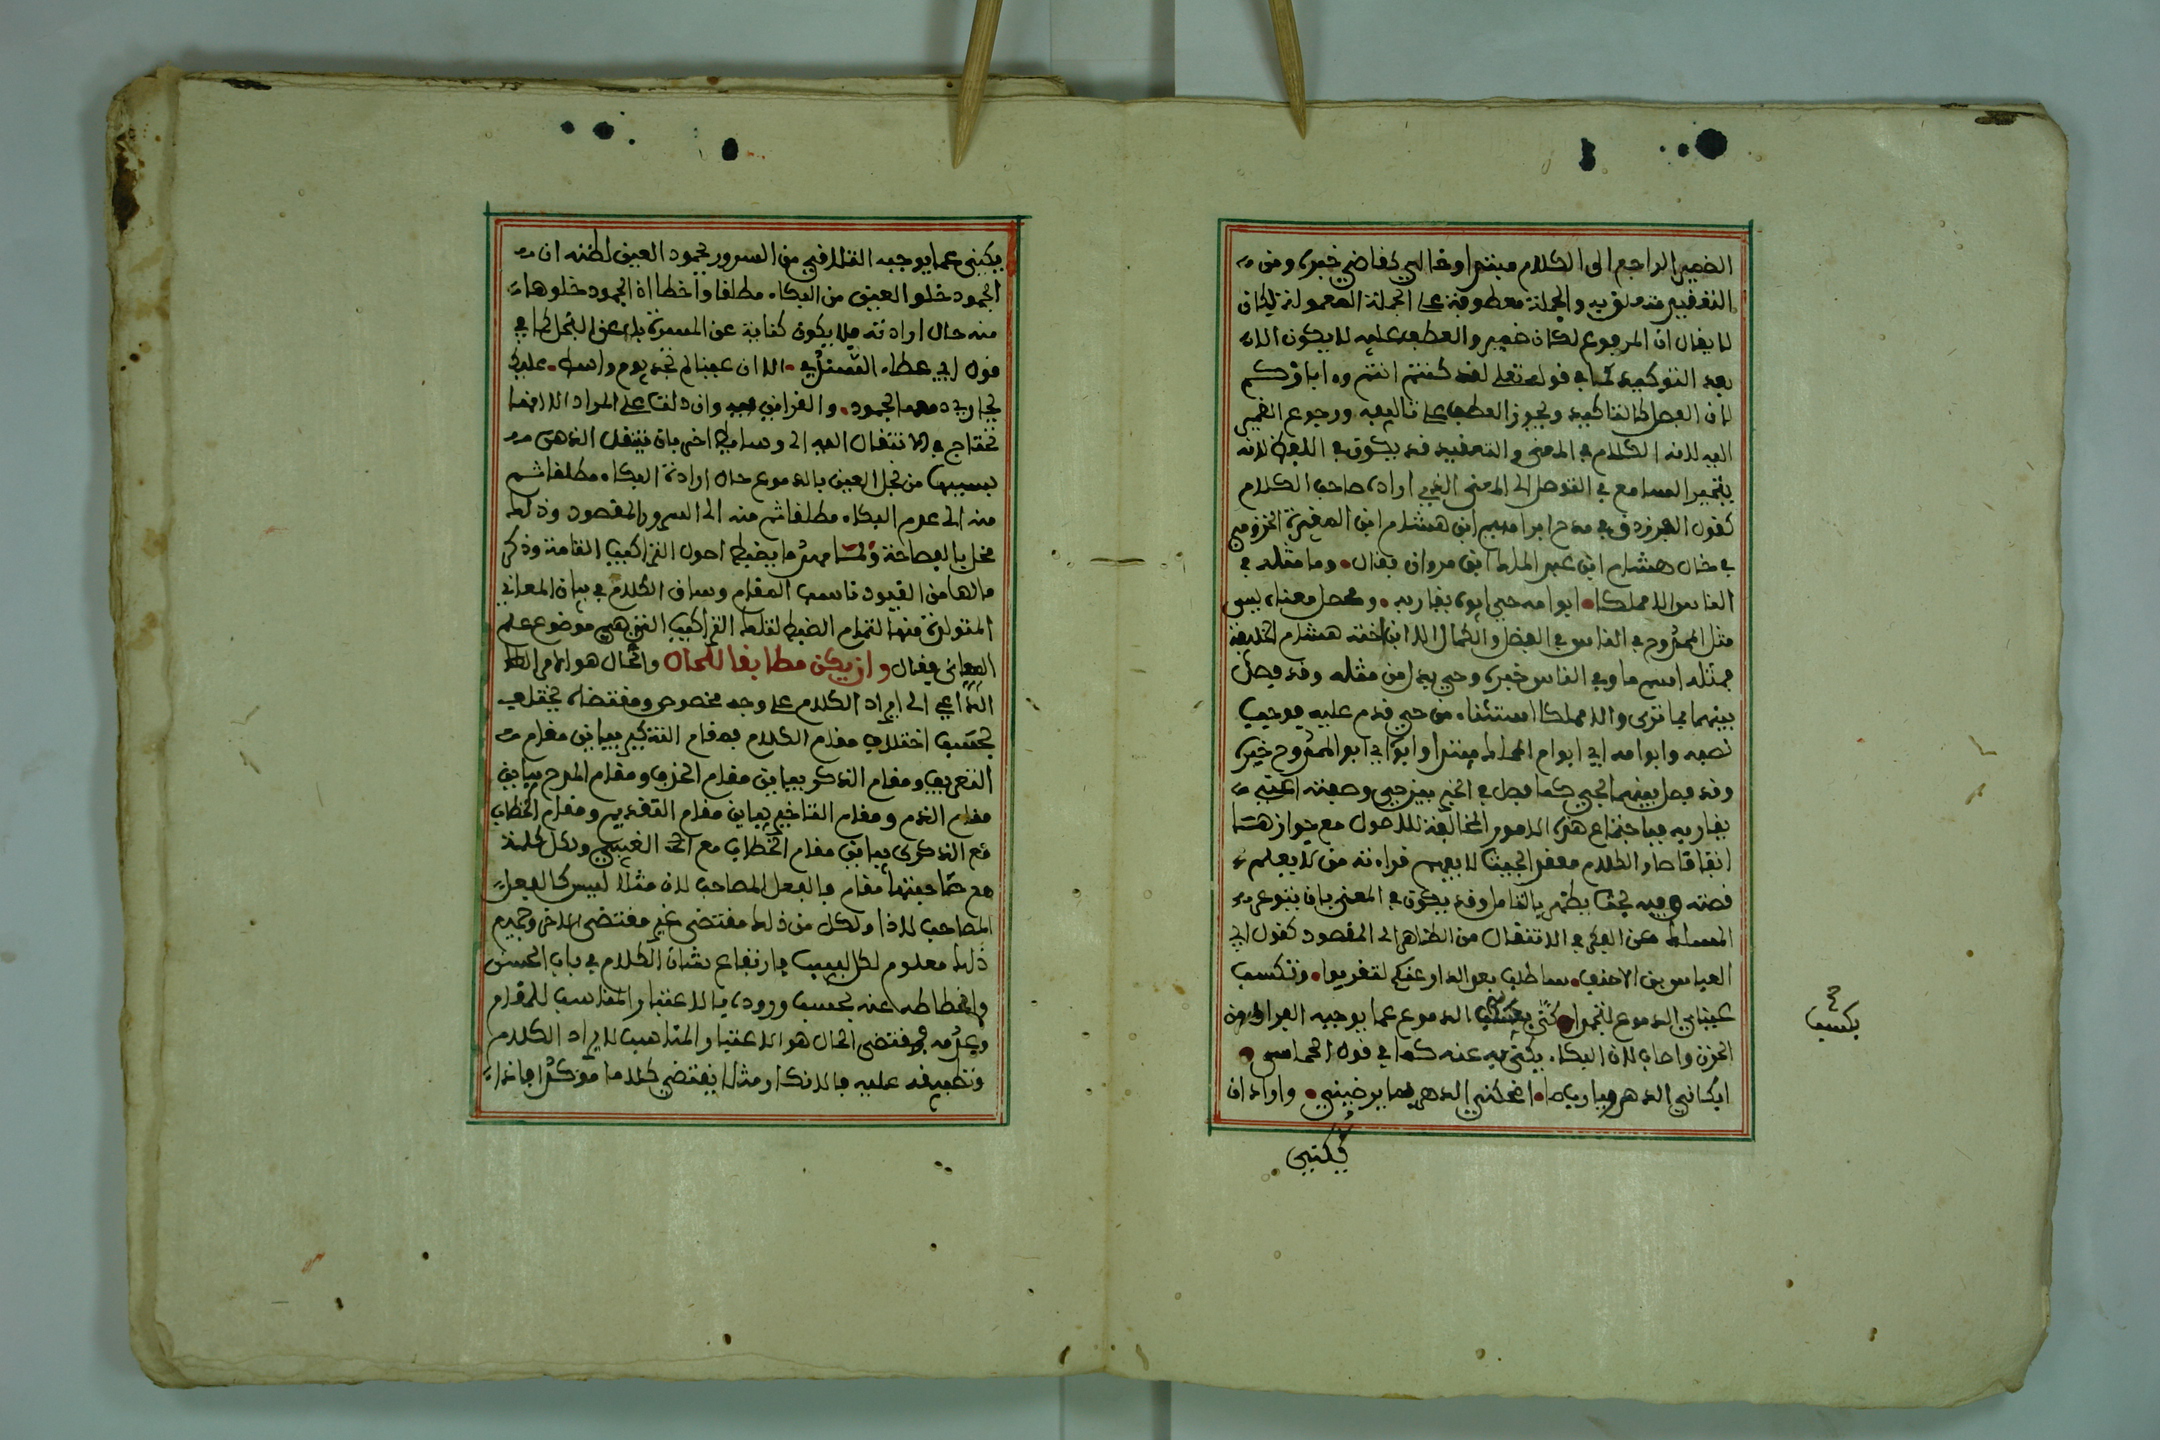 الضمير الراجع الى الكلام مبتدا وخالي كقاضي خبره ومن
التعقيد متعلق به والجملة معطوفة على الجملة المعمولة لكان
لا يقال ان المرفوع لكان ضمير والعطف عليه لا يكون الا
بعد التوكيد كما في قوله تعلى لقد كنتم انتم وءاباؤكم
لان الفصل كالتاكيد ويجوز العطف على تاليه ورجوع الضمير
اليه لانه الكلام في المعنى والتعقيد قد يكون في اللفظ لانه
يتحير السامع في التوصل الى المعنى الذي اراده صاحب الكلام
كقول الفرزدق في مدح ابراهيم ابن هشام ابن المغيرة المخزومي
في خال هشام ابن عبد الملك ابن مروان فقال وما مثله في
الناس الا مملكا ابو امه حي ابوه يقاربه ومحصل معناه ليس
مثل الممدوح في الناس في الفضل والكمال الا ابن اخته هشام الخليفة
فمثله اسم ما وفي الناس خبره وحي بدل من مثله وقد فصل
بينهما بما ترى والا مملكا استثناء من حي قدم عليه فوجب
نصبه وابو امه اي ابو ام المملك مبتدا وابوه اي ابو الممدوح خبره
وقد فصل بينهما الحي كما فصل في الخبر بين حي وصفته اعني
يقاربه فباجتماع هذه الامور المخالفة للاصول مع جواز هنا
اتفاقا صار الكلام معقد الجيد لا يفهم قراءته من لا يعلم
قصته وفيه بحث يظهر بالتامل وقد يكون في المعنى بان يتوعر
المسلك عن الفكر في الانتقال من الظاهر الى المقصود كقول ابي
العباس بن الاحنف ساطلب بعد الدار عنكم لتقربوا وتسكب
عيناي الدموع لتجمدا كنى بسكب الدموع عما يوجبه الفراق من
الحزن واصاب لان البكاء يكنى به عنه كما في قول الحماسي
ابكاني الدهر ويا ربما اضحكني الدهر بما يرضيني واراد ان
يكني
بسكب
يكني عما يوجبه التلاقي من السرور بجمود العين لظنه ان
الجمود خلو العين من البكاء مطلقا واخطا اذ الجمود خلوها
منه حال ارادته فلا يكون كناية عن المسرة بل عن البخل كما في
قول ابي عطاء الا ان عينا لم تجد يوم واسط عليك
بجاري دمعها لجمود والقرائن وان دلت على المراد الا انها
تحتاج في الانتقال اليه الى وسائط اخر بان ينتقل الذهن
بسببها من بخل العين بالدموع حال ارادة البكاء مطلقا ثم
منه الى عدم البكاء مطلقا ثم منه الى السرور المقصود وذلك
مخل بالفصاحة ولما مهد ما يضبط احول التراكيب التامة وذكر
مالها من القيود ناسب المقام وساق الكلام في بيان المعاني
المتولدة منها لتمام الضبط لتلك التراكيب التي هي موضوع علم
المعاني فقال وان يكن مطابقا للحال والحال هو الامر
الداعي الى ايراد الكلام على وجه مخصوص ومقتضاه يختلف
بحسب اختلاف مقام الكلام فمقام التنكير يباين مقام
التعريف ومقام الذكر يباين مقام الحذف ومقام المدح يباين
مقام الذم ومقام التاخير يباين مقام التقديم ومقام الخطاب
مع الذكي يباين مقام الخطاب مع الغبي ولكل كلمة
مع صاحبتها مقام فالفعل المصاحب لان مثلا ليس كالفعل
المصاحب لاذا ولكل من ذلك مقتضى غير مقتضى الاخر وجميع
ذلك معلوم لكل لبيب فارتفاع شان الكلام في باب الحسن
وانحطاطه عنه بحسب وروده بالاعتبار المناسب للمقام
وعدمه فمقتضى الحال هو الاعتبار المناسب لايراد الكلام
وتطبيقه عليه فالانكار مثلا يقتضي كلاما مؤكدا فاذا